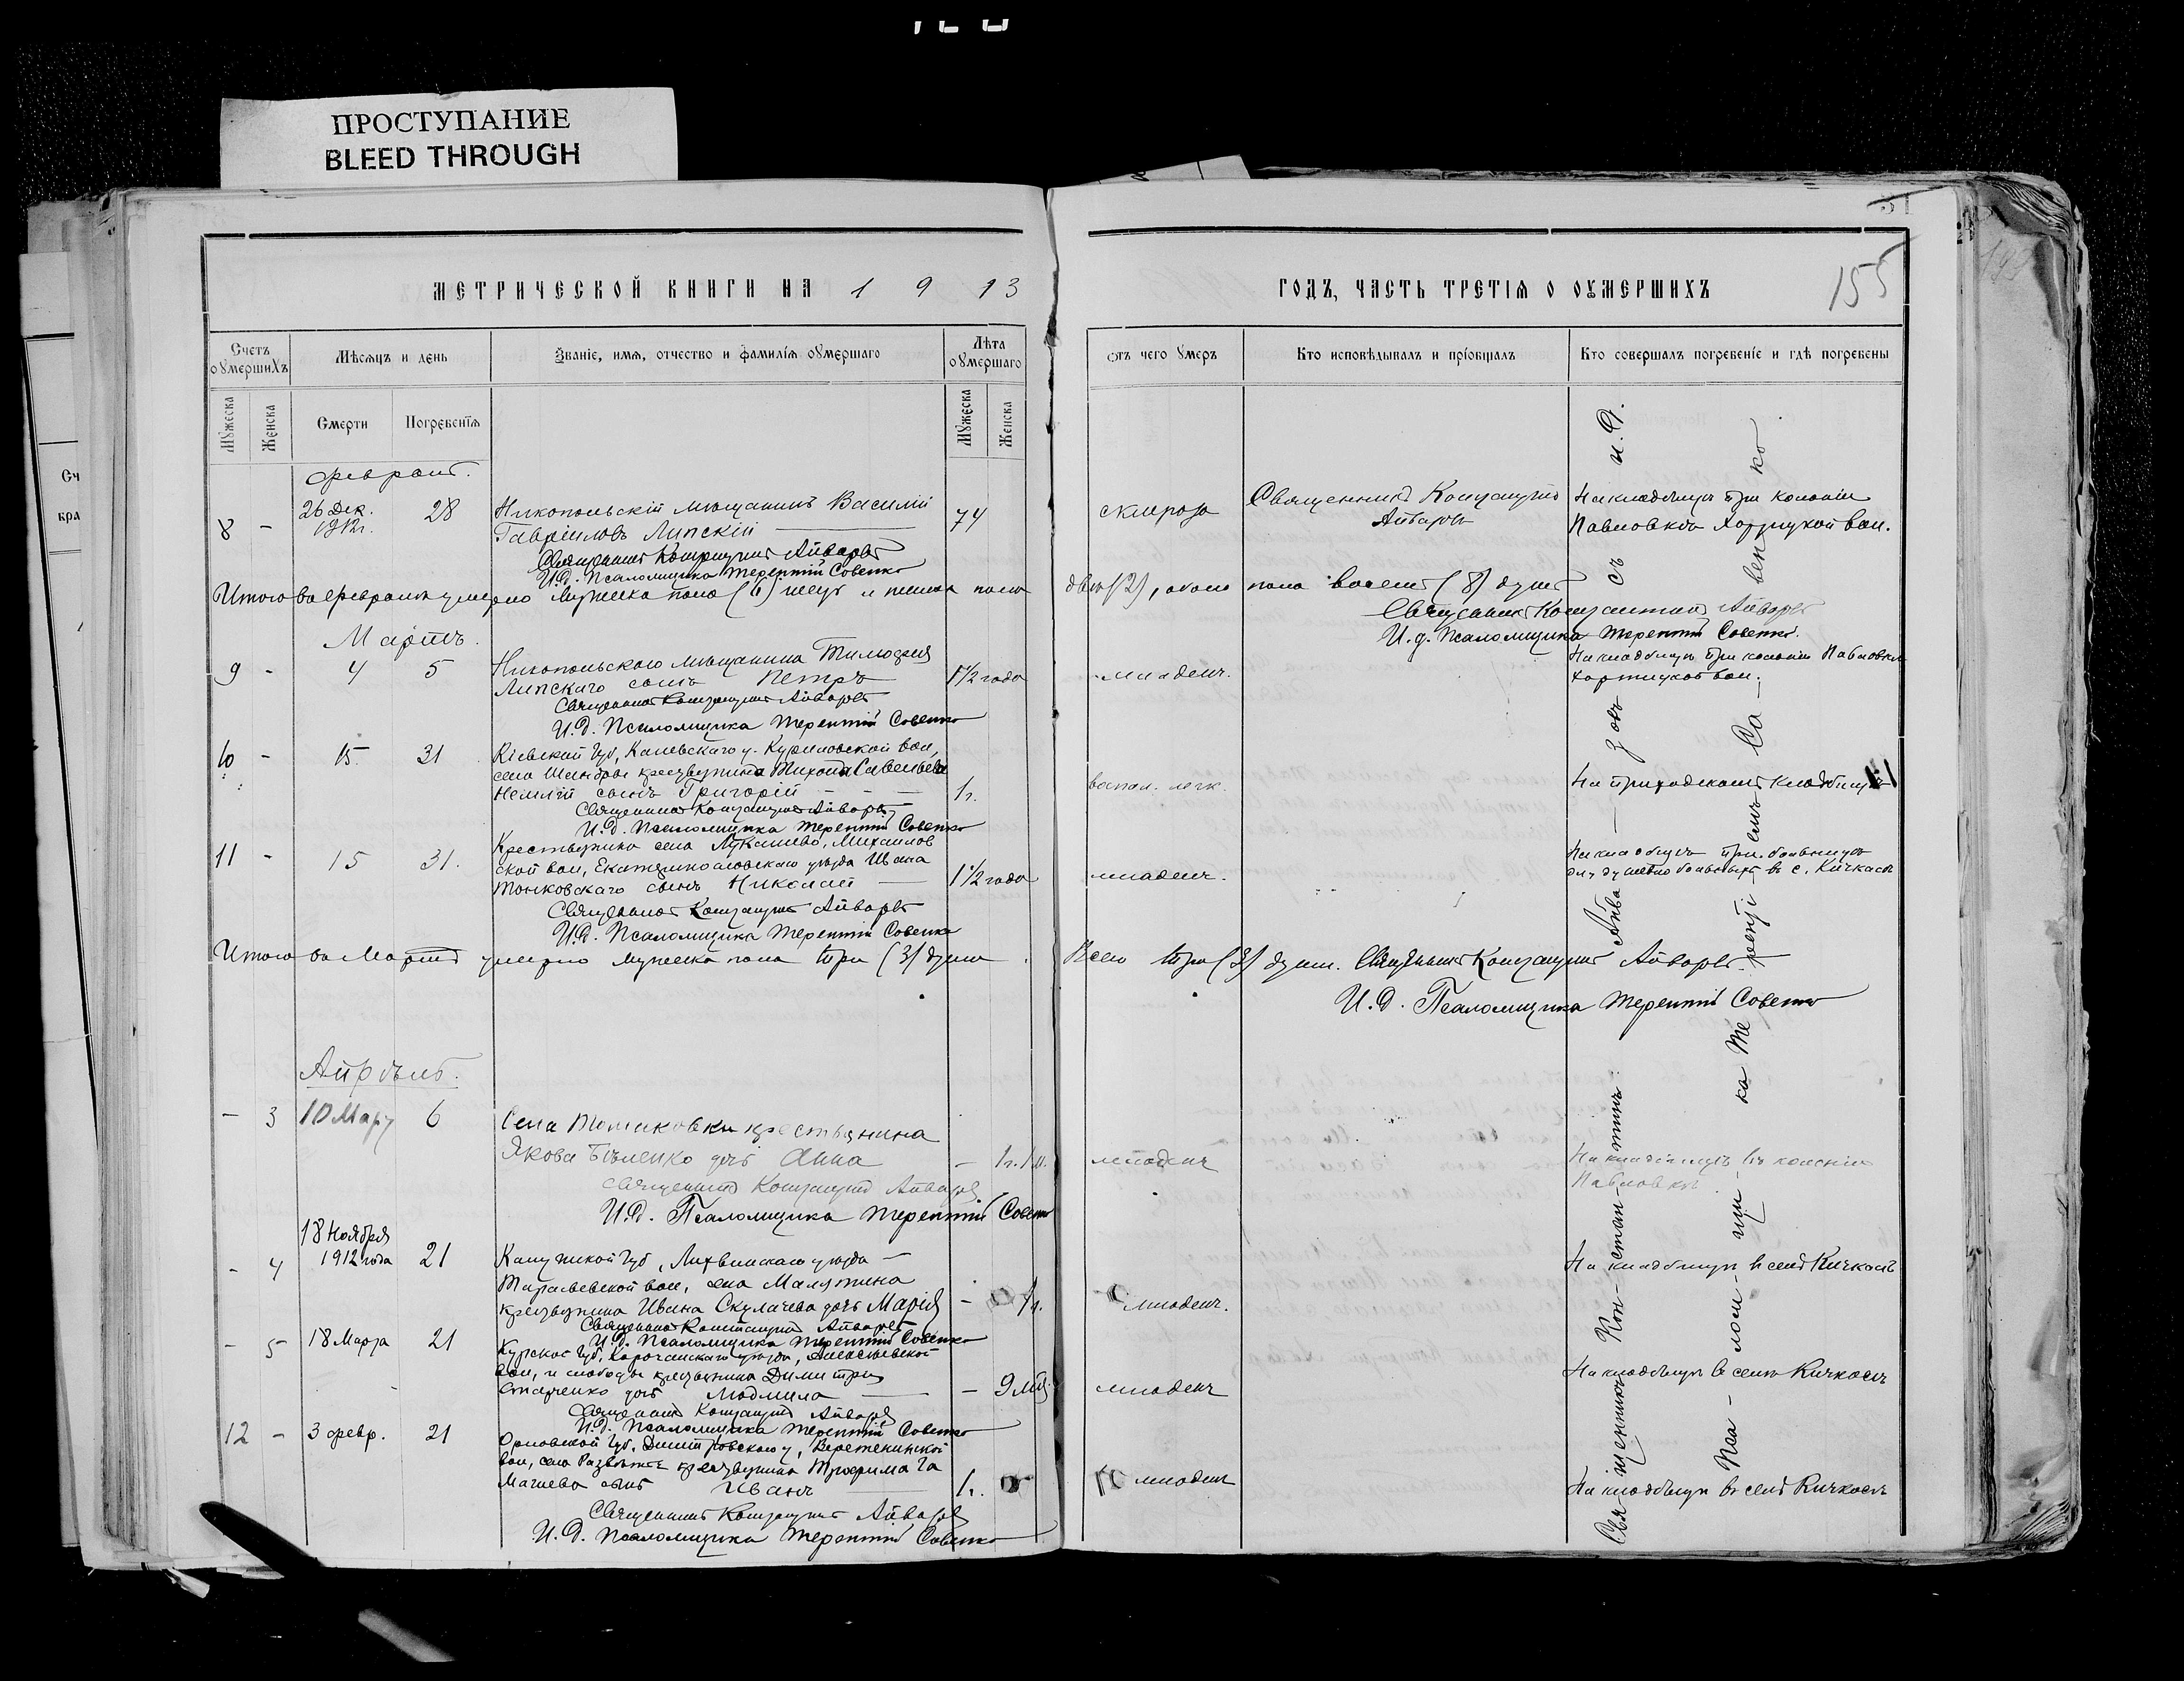 ПРОСТУПАНИЕ
BLEED THROUGH
МЕТРИЧЕСКОЙ КНИГИ НА 1913
ГОДЪ, ЧАСТЬ ТРЕТІЯ О ОУМЕРШИХЪ
155
Счетъ оумершихъ
Мѣсяцъ и день
Званіе, имя, отчество и фамилія оумершаго
Лѣта оумершаго
отъ чего умеръ
Кто исповѣдывалъ и пріобщалъ
Кто совершалъ погребеніе и гдѣ погребены
Мужеска
Женска
Смерти
Погребенія
Мужеска
Женска
Февраль.
8 - 26 Дек. 1912г. 28
Никопольскій мѣщанинъ Василій
Гавріиловъ Липскій 74
склероза
Священникъ Константинъ
Айваровъ
На кладбищѣ при колоніи
Павловкѣ Хортицкой вол.
Священникъ Константинъ Айваровъ
И.д. Псаломщика Терентій Совенко
Итого въ Февралѣ умерло мужеска пола (6) шесть и женска пола
двѣ (2), обоего пола восемь (8) душъ
Священникъ Константинъ Айваровъ
И.д. Псаломщика Терентій Совенко.
Мартъ.
9 - 4 5
Никопольскаго мѣщанина Тимофея
Липскаго сынъ Петръ 1 1/2 года
младенч.
На кладбищѣ при колоніи Павловкѣ
Хортицкой вол.
Священникъ Константинъ Айваровъ
И.д. Псаломщика Терентій Совенко
10 - 15 31
Кіевской губ., Каневскаго у. Куриловской вол,
села крестьянина Тихона Савельева
сынъ Григорій 1г.
воспал. легк.
На приходскомъ кладбищѣ
Священникъ Константинъ Айваровъ
И.д. Псаломщика Терентій Совенко
11 - 15 31.
Крестьянина села Лукашево, Михайлов
ской вол, Екатеринославскаго уѣзда Ивана
сынъ Николай 1 1/2 года
младенч.
На кладбищѣ при больницѣ
для душевно больныхъ въ с. Кичкасѣ
Священникъ Константинъ Айваровъ
И.д. Псаломщика Терентій Совенко
Итого въ Мартѣ умерло мужеска пола три (3) души.
Всего три (3) души. Священникъ Константинъ Айваровъ.
И.д. Псаломщика Терентій Совенко
Апрѣль.
- 3 10 Марта 6
Села Томаковки крестьянина
Якова Бѣленко дочь Анна - 1г. 1м.
младенч
На кладбищѣ въ колоніи
Павловкѣ
Священникъ Константинъ Айваровъ
И.д. Псаломщика Терентій Совенко
- 4 18 Ноября 1912 года 21
Калужской губ, Лихвинскаго уѣзда
вол, села
крестьянина Ивана Скулачева дочь Марія - 1г.
младенч.
На кладбищѣ въ селѣ Кичкасъ
Священникъ Константинъ Айваровъ
И.д. Псаломщика Терентій Совенко
- 5 18 Марта 21
Курской губ, Корочанскаго уѣзда, Алексѣевской
вол, и слободы крестьянина Димитрія
Старченко дочь Людмила - 9 мѣс.
младенч
На кладбищѣ въ селѣ Кичкасъ
Священникъ Константинъ Айваровъ
И.д. Псаломщика Терентій Совенко
12 - 3 февр. 21
Орловской губ. Димитровскаго у, Веретенинской
вол, села крестьянина Трофима
сынъ Иванъ 1г.
младенч
На кладбищѣ въ селѣ Кичкасъ
Священникъ Константинъ Айваровъ
И.д. Псаломщика Терентій Совенко
Свя-щенникъ Кон-стан-тинъ Айва-ровъ съ и.д.
Пса-лом-щи-ка Те-рентj-емъ Со-вен-ко